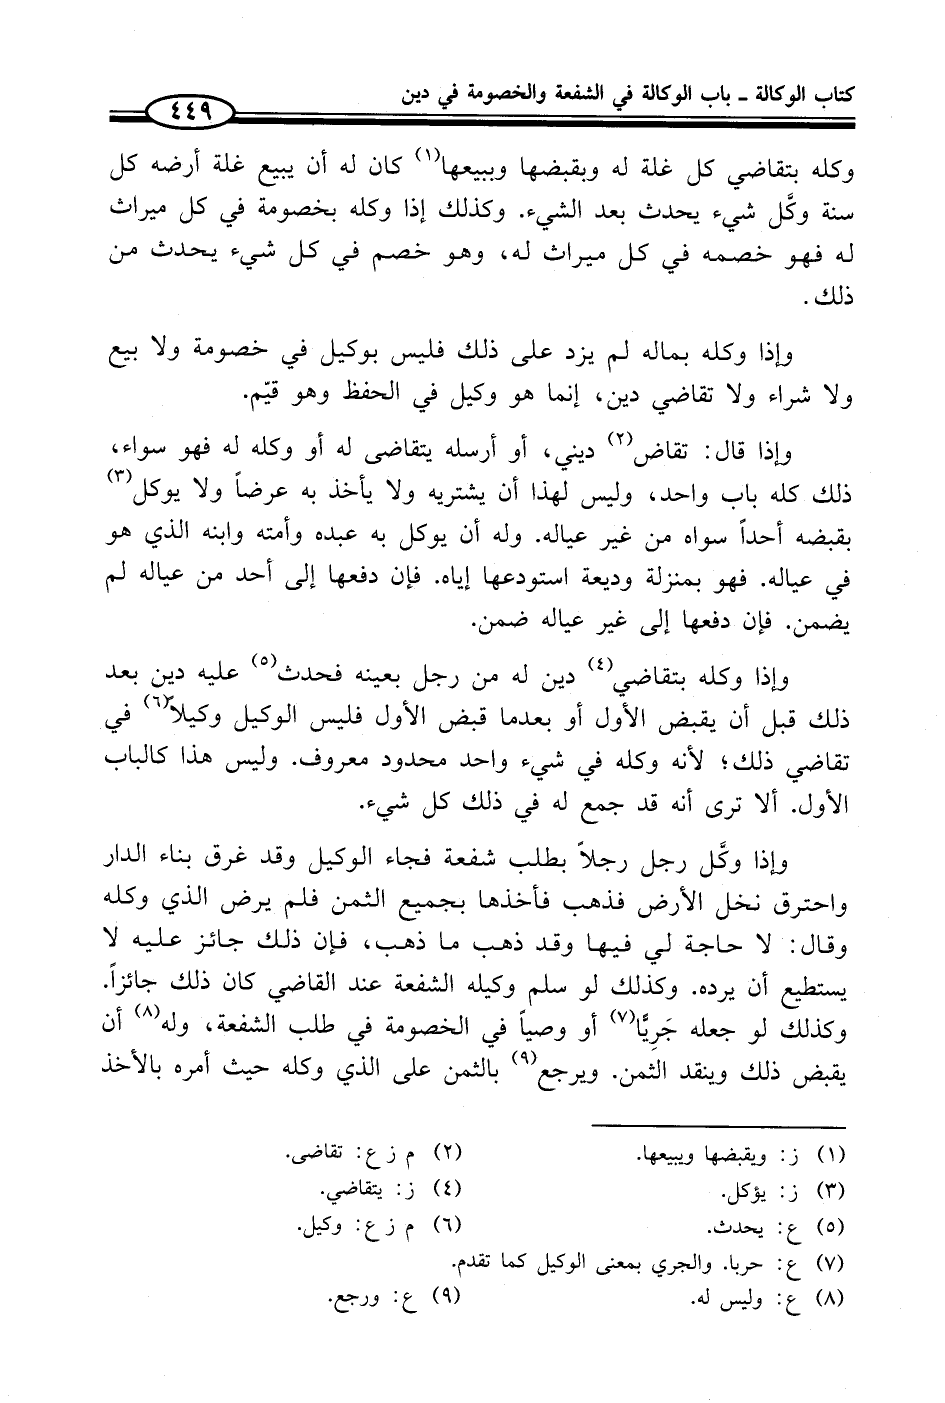 كتاب الوكالة - باب الوكالة في الشفعة والخصومة في دين
٤٤٩
وكله بتقاضي كل غلة له وبقبضها وبيعها(١) كان له أن يبيع غلة أرضه كل
سنة وكَّل شيء يحدث بعد الشيء. وكذلك إذا وكله بخصومة في كل ميراث
له فهو خصمه في كل ميراث له، وهو خصم في كل شيء يحدث من
ذلك.
وإذا وكله بماله لم يزد على ذلك فليس بوكيل في خصومة ولا بيع
ولا شراء ولا تقاضي دين، إنما هو وكيل في الحفظ وهو قيّم.
وإذا قال: تقاض(٢) ديني، أو أرسله يتقاضى له أو وكله له فهو سواء،
ذلك كله باب واحد، وليس لهذا أن يشتريه ولا يأخذ به عرضاً ولا يوكل(٣)
بقبضه أحداً سواه من غير عياله. وله أن يوكل به عبده وأمته وابنه الذي هو
في عياله. فهو بمنزلة وديعة استودعها إياه. فإن دفعها إلى أحد من عياله لم
يضمن. فإن دفعها إلى غير عياله ضمن.
وإذا وكله بتقاضي(٤) دين له من رجل بعينه فحدث(٥) عليه دين بعد
ذلك قبل أن يقبض الأول أو بعدما قبض الأول فليس الوكيل وكيلاً(٦) في
تقاضي ذلك؛ لأنه وكله في شيء واحد محدود معروف. وليس هذا كالباب
الأول. ألا ترى أنه قد جمع له في ذلك كل شيء.
وإذا وكَّل رجل رجلاً بطلب شفعة فجاء الوكيل وقد غرق بناء الدار
واحترق نخل الأرض فذهب فأخذها بجميع الثمن فلم يرض الذي وكله
وقال: لا حاجة لي فيها وقد ذهب ما ذهب، فإن ذلك جائز عليه لا
يستطيع أن يرده. وكذلك لو سلم وكيله الشفعة عند القاضي كان ذلك جائزاً.
وكذلك لو جعله جَرِيًّا(٧) أو وصياً في الخصومة في طلب الشفعة، وله(٨) أن
يقبض ذلك وينقد الثمن. ويرجع(٩) بالثمن على الذي وكله حيث أمره بالأخذ
(١) ز: ويقبضها ويبيعها.
(٢) م ز ع: تقاضى.
(٣) ز: يؤكل.
(٤) ز: يتقاضي.
(٥) ع: يحدث.
(٦) م ز ع: وكيل.
(٧) ع: حربا. والجري بمعنى الوكيل كما تقدم.
(٨) ع: وليس له.
(٩) ع: ورجع.